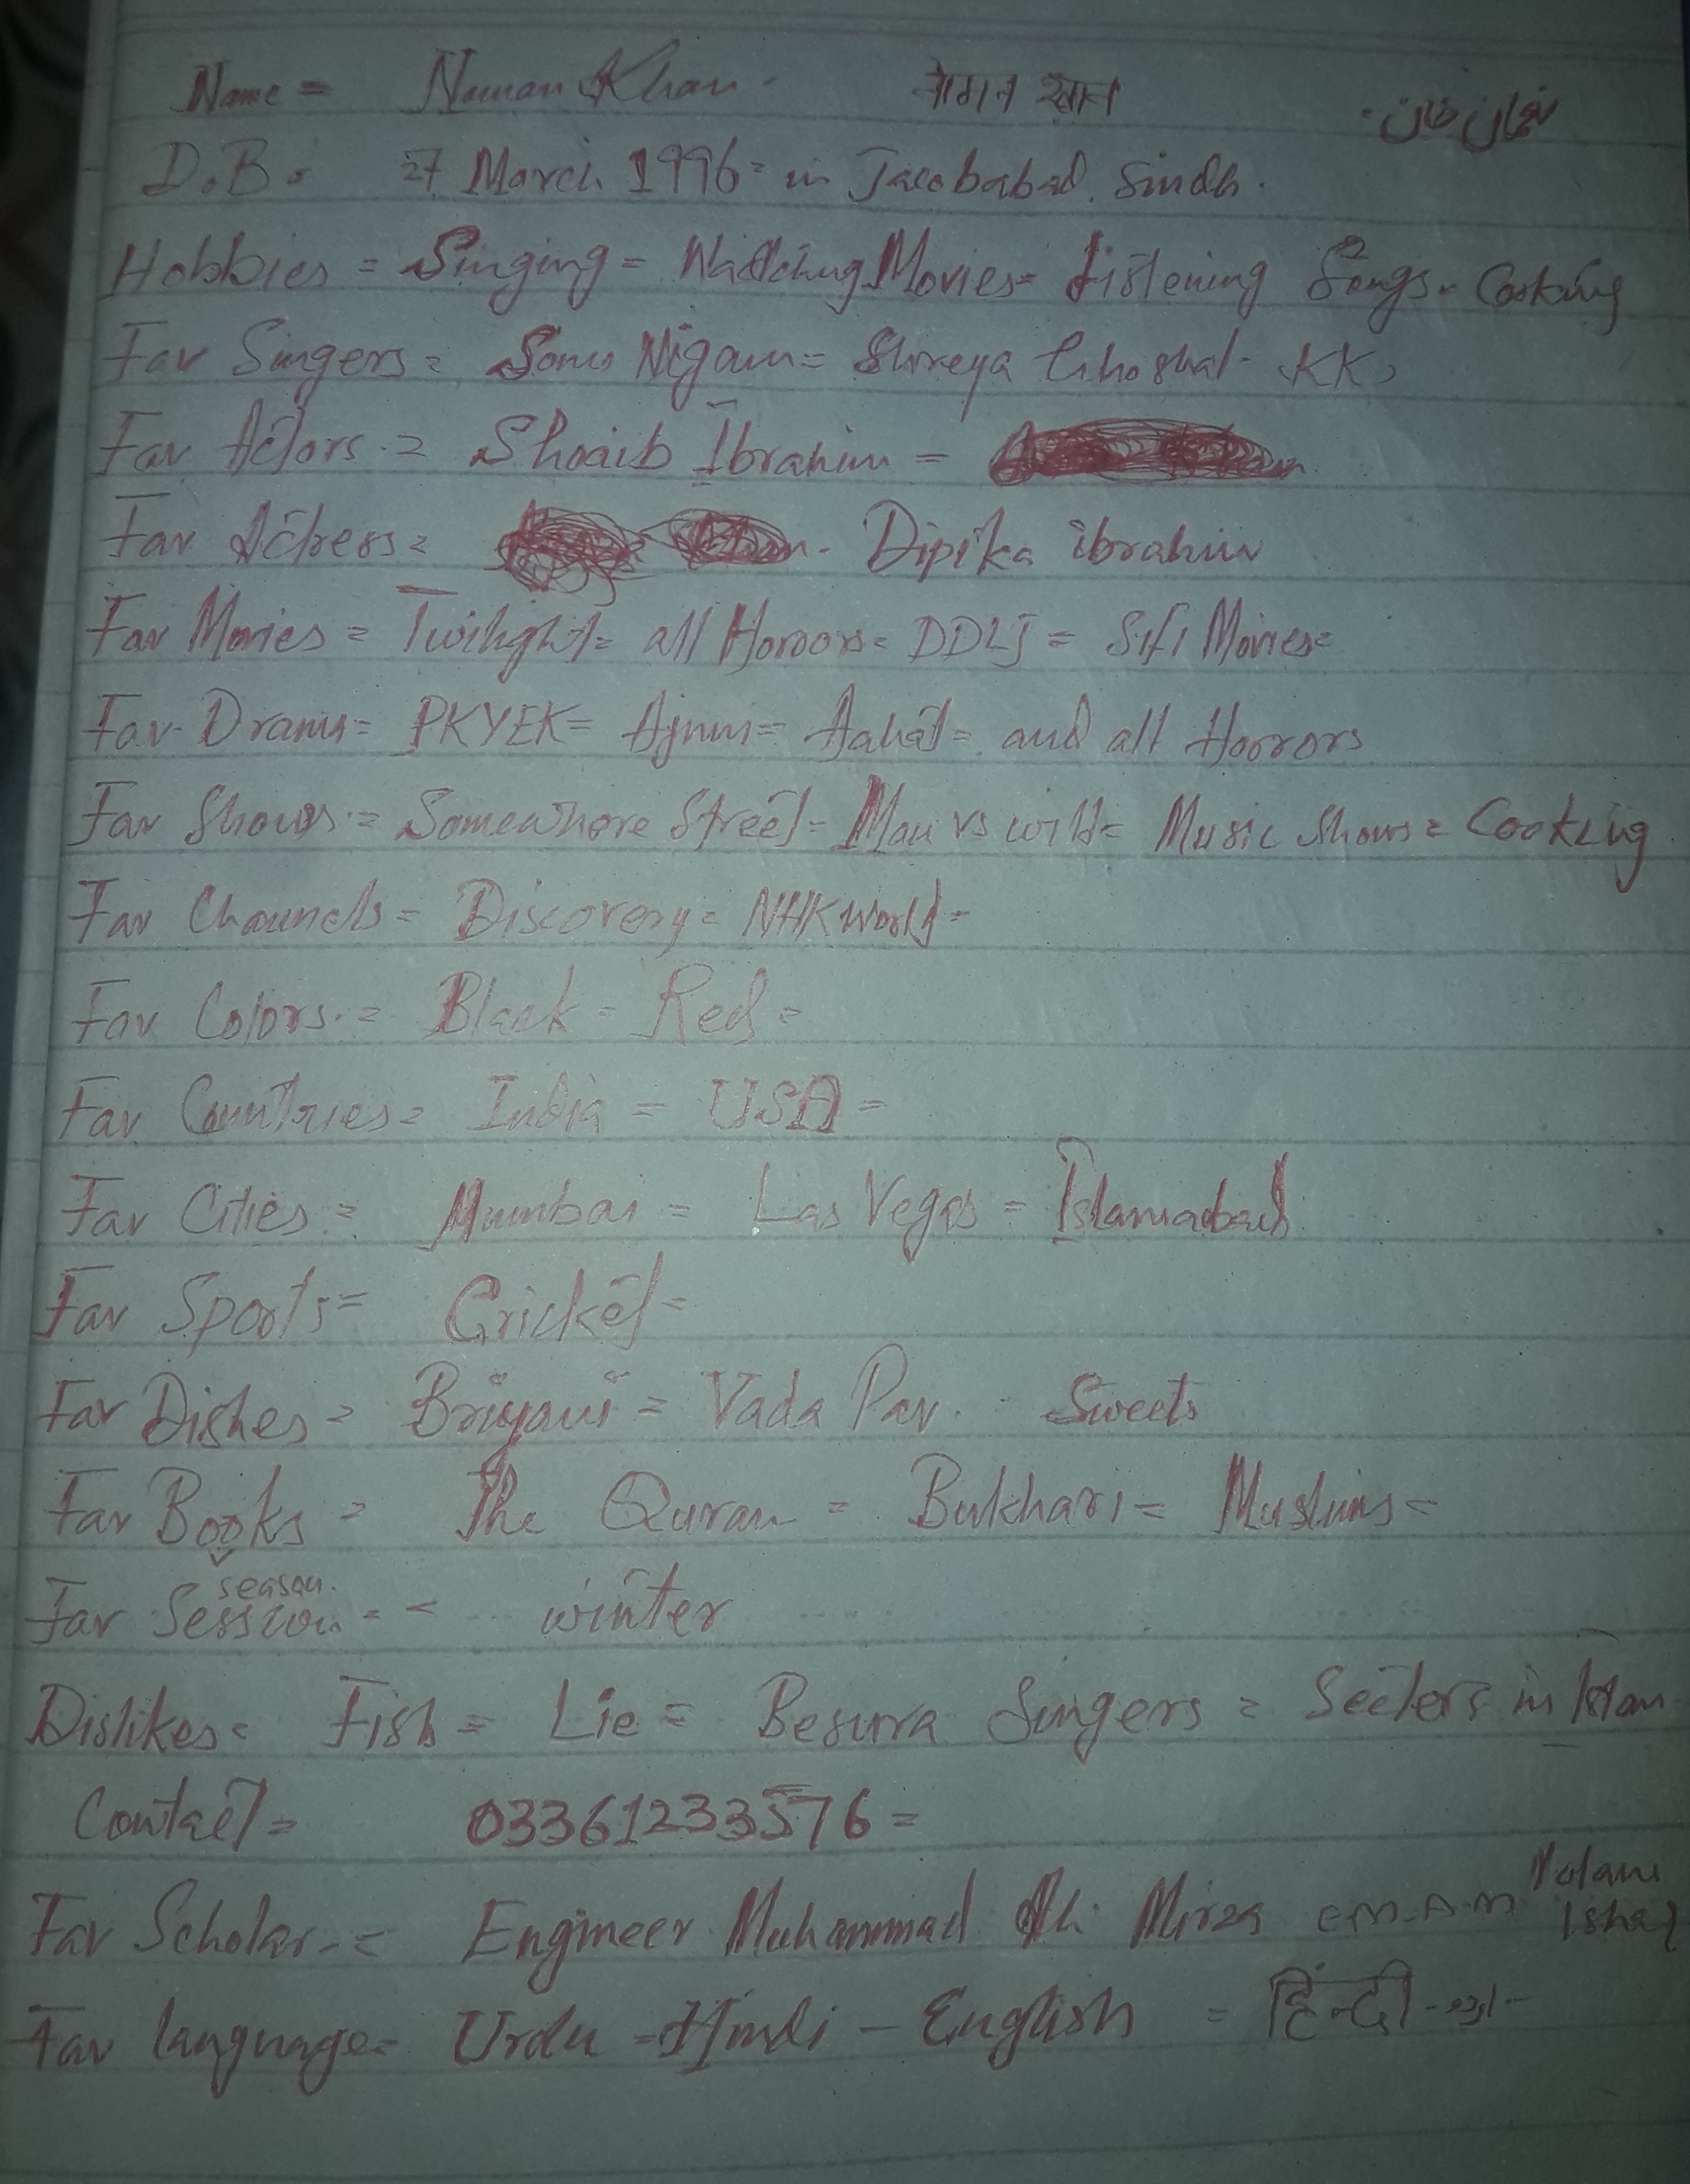 Name = Noman Khan. नोमान खान نعمان خان.
D.B. 27 March 1996 = in Jacobabad. Sindh.
Hobbies = Singing = Watching Movies = Listening Songs. Cooking
Fav Singers = Sonu Nigam = Shreya Ghoshal - KK,
Fav Actors. = Shoaib Ibrahim =
Fav Actress = - Dipika ibrahim
Fav Movies = Twilight = all Horrors = DDLJ = Sifi Movies =
Fav. Drams = PKYEK = Ajnui = Aahat = and all Horrors
Fav Shows. = Somewhere Street - Man vs wild = Music Shows = Cooking
Fav Channels = Discovery = NHK World -
Fav Colors. = Black - Red =
Fav Countries = India = USA =
Fav Cities = Mumbai = Las Vegas = Islamabad
Fav Sports = Cricket =
Fav Dishes = Briyani = Vada Pav. - Sweets
Fav Books = The Quran = Bukhari = Muslims =
season.
Fav Session = - winter
Dislikes = Fish = Lie = Besura Singers = Secters in Islam
Contact = 03361233576 =
Fav Scholar - = Engineer Muhammad Ali Mirza EMAM Molana Ishaq
Fav language = Urdu = Hindi - English = हिन्दी - اردو -